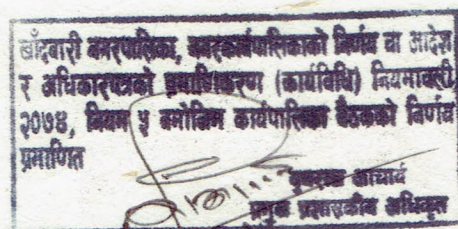 खाँदबारी नगरपालिका, नगरकार्यपालिकाको निर्णय वा आदेश
र अधिकारपत्रको प्रमाणिकरण (कार्यविधि) नियमावली,
२०७४, नियम ५ बमोजिम कार्यपालिका बैठकको निर्णय
प्रमाणित
आचार्य
प्रमुख प्रशासकीय अधिकृत